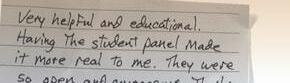 Very helpful and educational.
Having The student panel made
it more real to me. They were
so open and